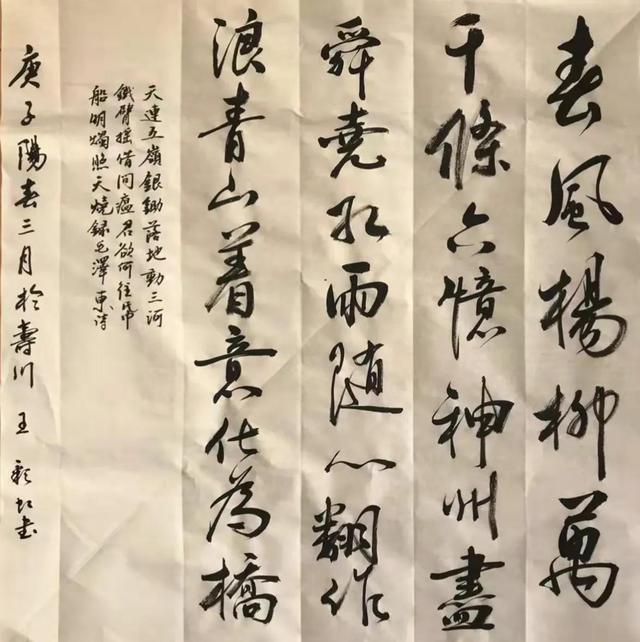 春風楊柳萬
千條六億神州盡
舜堯红雨随心翻作
浪青山着意化為橋
天連五嶺銀鋤落地動三河
鐵臂摇借问瘟君欲何往帋
船明燭照天燒録毛澤東诗
庚子陽春三月於壽川 王彩書